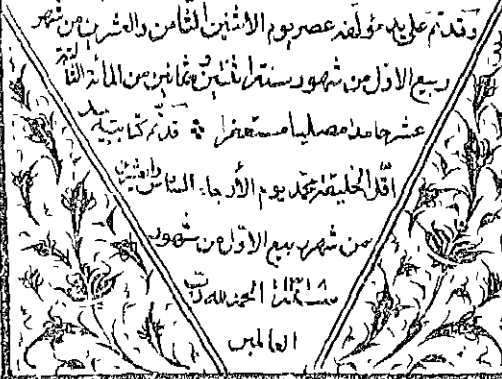 وقد تم على يد مؤلفه عصر يوم الاثنين الثامن والعشرين من شهر
ربيع الاول من شهور سنة اثنتين وثمانين من المائة الثالثة
عشر حامدا مصليا مستغفرا قد تم كتابته بيد
اقل الخليقة محمد يوم الأربعاء السادس والعشرين
من شهر ربيع الاول من شهور
الحمد لله رب
العالمين